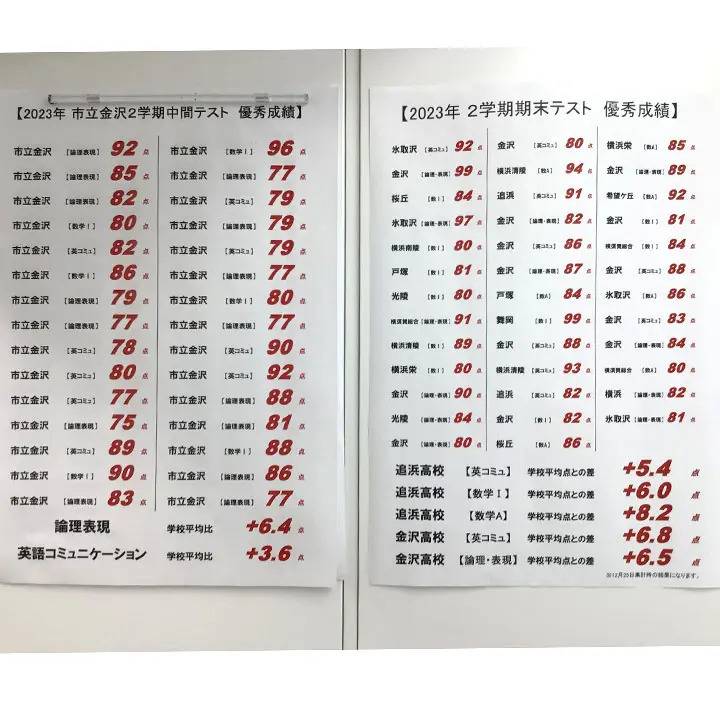 【2023年 市立金沢2学期中間テスト 優秀成績】
市立金沢 【論理表現】 92 点 市立金沢 【数学Ⅰ】 96 点
市立金沢 【論理表現】 85 点 市立金沢 【論理表現】 77 点
市立金沢 【論理表現】 82 点 市立金沢 【英コミュ】 79 点
市立金沢 【数学Ⅰ】 80 点 市立金沢 【論理表現】 79 点
市立金沢 【英コミュ】 82 点 市立金沢 【英コミュ】 79 点
市立金沢 【数学Ⅰ】 86 点 市立金沢 【論理表現】 77 点
市立金沢 【論理表現】 79 点 市立金沢 【数学Ⅰ】 80 点
市立金沢 【論理表現】 77 点 市立金沢 【論理表現】 77 点
市立金沢 【英コミュ】 78 点 市立金沢 【英コミュ】 90 点
市立金沢 【英コミュ】 80 点 市立金沢 【英コミュ】 92 点
市立金沢 【英コミュ】 77 点 市立金沢 【論理表現】 88 点
市立金沢 【論理表現】 75 点 市立金沢 【論理表現】 81 点
市立金沢 【英コミュ】 89 点 市立金沢 【数学Ⅰ】 88 点
市立金沢 【数学Ⅰ】 90 点 市立金沢 【論理表現】 86 点
市立金沢 【論理表現】 83 点 市立金沢 【論理表現】 77 点
論理表現 学校平均比 +6.4 点
英語コミュニケーション 学校平均比 +3.6 点
【2023年 2学期期末テスト 優秀成績】
氷取沢 【英コミュ】 92 点 金沢 【英コミュ】 80 点 横浜栄 【数A】 85 点
金沢 【論理・表現】 99 点 横浜清陵 【数A】 94 点 金沢 【論理・表現】 89 点
桜丘 【数Ⅰ】 84 点 追浜 【英コミュ】 91 点 希望ケ丘 【数A】 92 点
氷取沢 【論理・表現】 97 点 金沢 【論理・表現】 82 点 金沢 【数Ⅰ】 81 点
横浜南陵 【数Ⅰ】 80 点 金沢 【英コミュ】 86 点 横須賀総合 【数Ⅰ】 84 点
戸塚 【数Ⅰ】 81 点 金沢 【論理・表現】 87 点 金沢 【英コミュ】 88 点
光陵 【数Ⅰ】 80 点 戸塚 【数A】 84 点 氷取沢 【数A】 86 点
横須賀総合 【論理・表現】 91 点 舞岡 【数Ⅰ】 99 点 金沢 【英コミュ】 83 点
横浜清陵 【数Ⅰ】 89 点 金沢 【英コミュ】 88 点 金沢 【論理・表現】 84 点
横浜栄 【数Ⅰ】 80 点 横浜清陵 【英コミュ】 93 点 横須賀総合 【数A】 80 点
金沢 【論理・表現】 90 点 追浜 【英コミュ】 82 点 横浜 【論理・表現】 82 点
光陵 【論理・表現】 84 点 金沢 【数Ⅰ】 82 点 氷取沢 【論理・表現】 81 点
金沢 【論理・表現】 80 点 桜丘 【数A】 86 点
追浜高校 【英コミュ】 学校平均点との差 +5.4 点
追浜高校 【数学Ⅰ】 学校平均点との差 +6.0 点
追浜高校 【数学A】 学校平均点との差 +8.2 点
金沢高校 【英コミュ】 学校平均点との差 +6.8 点
金沢高校 【論理・表現】 学校平均点との差 +6.5 点
※12月25日集計時の結果になります。